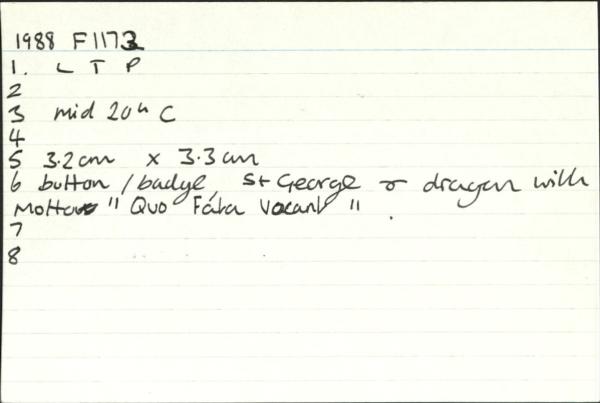 1988 F1173
1. L T P
2
3 mid 20th C
4
5 3.2cm x 3.3cm
6 button/badge, St George & dragon with
Motto " Quo Fata Vocant ".
7
8